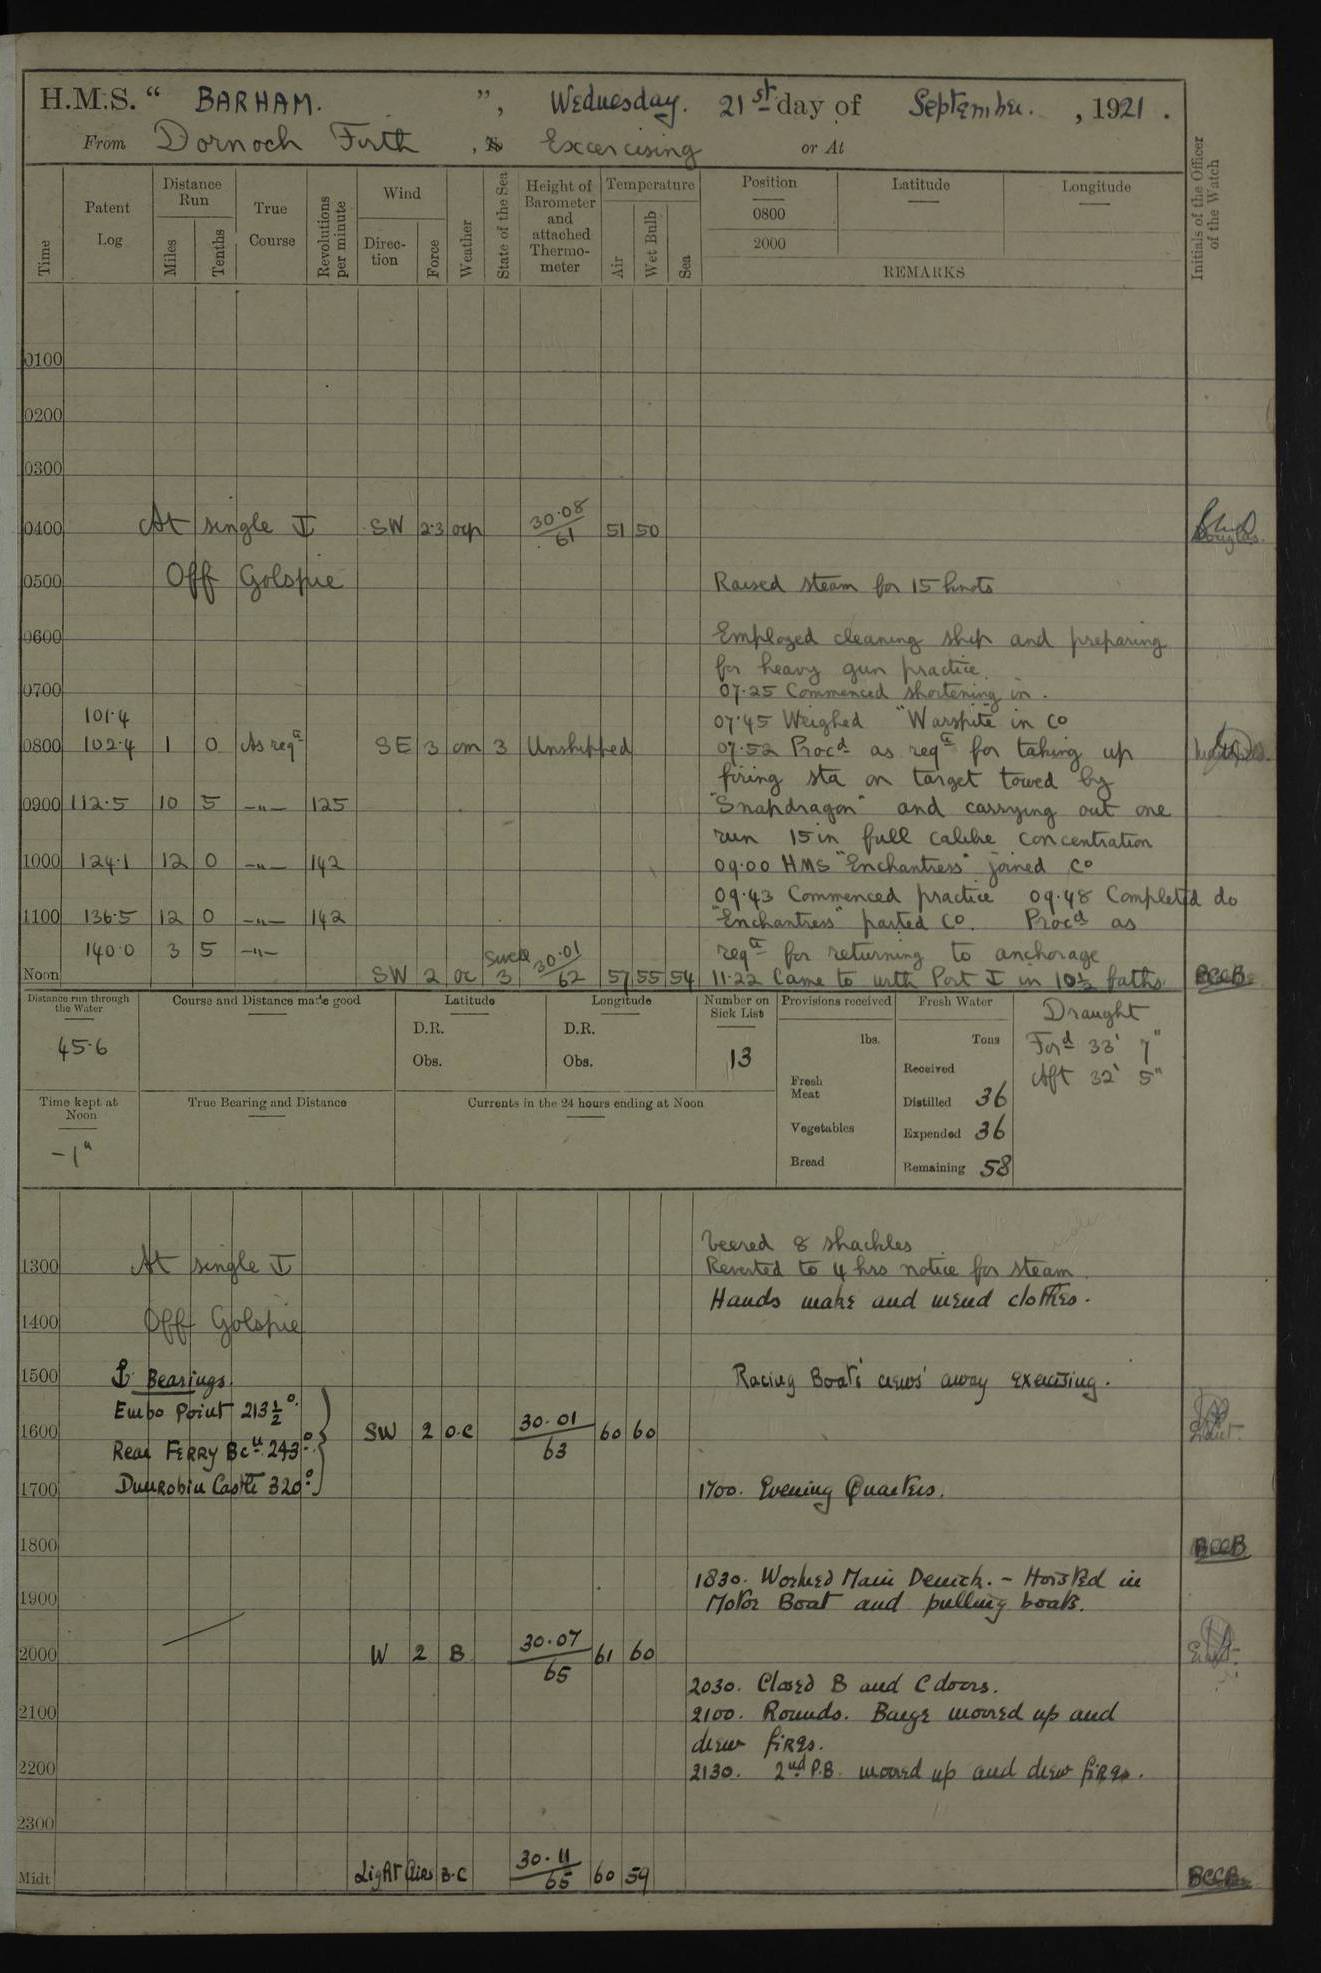 H.M.S. “ BARHAM. ”, Wednesday. 21st day of September. , 1921 .
From Dornoch Firth , Excercising or At
Time
Patent Log
Distance Run
Miles
Tenths
True Course
Revolutions per minute
Wind
Direc-tion
Force
Weather
State of the Sea
Height of Barometer and attached Thermo-meter
Temperature
Air
Wet Bulb
Sea
Position
0800
2000
Latitude
Longitude
REMARKS
Initials of the Officer of the Watch
0100
0200
0300
0400 At single SW 2·3 30·08/61 51 50 Douglas.
0500 Off Golspie Raised steam for 15 knots
0600 Employed cleaning ship and preparing
for heavy gun practice.
0700 07·25 Commenced shortening in.
101·4 07·45 Weighed "Warspite" in Co
0800 102·4 1 0 As reqd SE 3 om 3 Unshipped 07·52 Procd as reqd for taking up
firing sta on target towed by
0900 112·5 10 5 —"— 125 "Snapdragon" and carrying out one
run 15 in full calibre concentration
1000 124·1 12 0 —"— 142 09·00 HMS "Enchantress" joined Co
09·43 Commenced practice 09·48 Completed do
1100 136·5 12 0 —"— 142 "Enchantress" parted Co. Procd as
140·0 3 5 —"— reqd for returning to anchorage
Noon SW 2 oc Swell 3 30·01/62 57 55 54 11·22 Came to with Port in 10½ faths. BCCB
Distance run through the Water
45·6
Course and Distance made good
Latitude
D.R.
Obs.
Longitude
D.R.
Obs.
Number on Sick List
13
Provisions received
lbs.
Fresh Meat
Vegetables
Bread
Fresh Water
Tons
Received
Distilled 36
Expended 36
Remaining 58
Draught
Ford 33' 7"
Aft 32' 5"
Time kept at Noon
-1
True Bearing and Distance
Currents in the 24 hours ending at Noon
Veered 8 shackles
1300 At single Reverted to 4 hrs notice for steam.
Hands make and mend clothes.
1400 Off Golspie
1500 ⚓ Bearings. Racing Boats' crews' away exercising.
Embo Point 213½°.
1600 SW 2 o.c 30·01/63 60 60
Rear FERRY Bcn 243°.
1700 Dunrobin Castle 320°. 1700. Evening Quarters.
1800 BCCB
1830. Worked Main Derrick. - Hoisted in
1900 Motor Boat and pulling boats.
2000 W 2 B 30·07/65 61 60
2030. Closed B and C doors.
2100 2100. Rounds. Barge moored up and
drew fires.
2200 2130. 2nd P.B. moored up and drew fires.
2300
Midt Light Airs B·C 30·11/65 60 59 BCCB